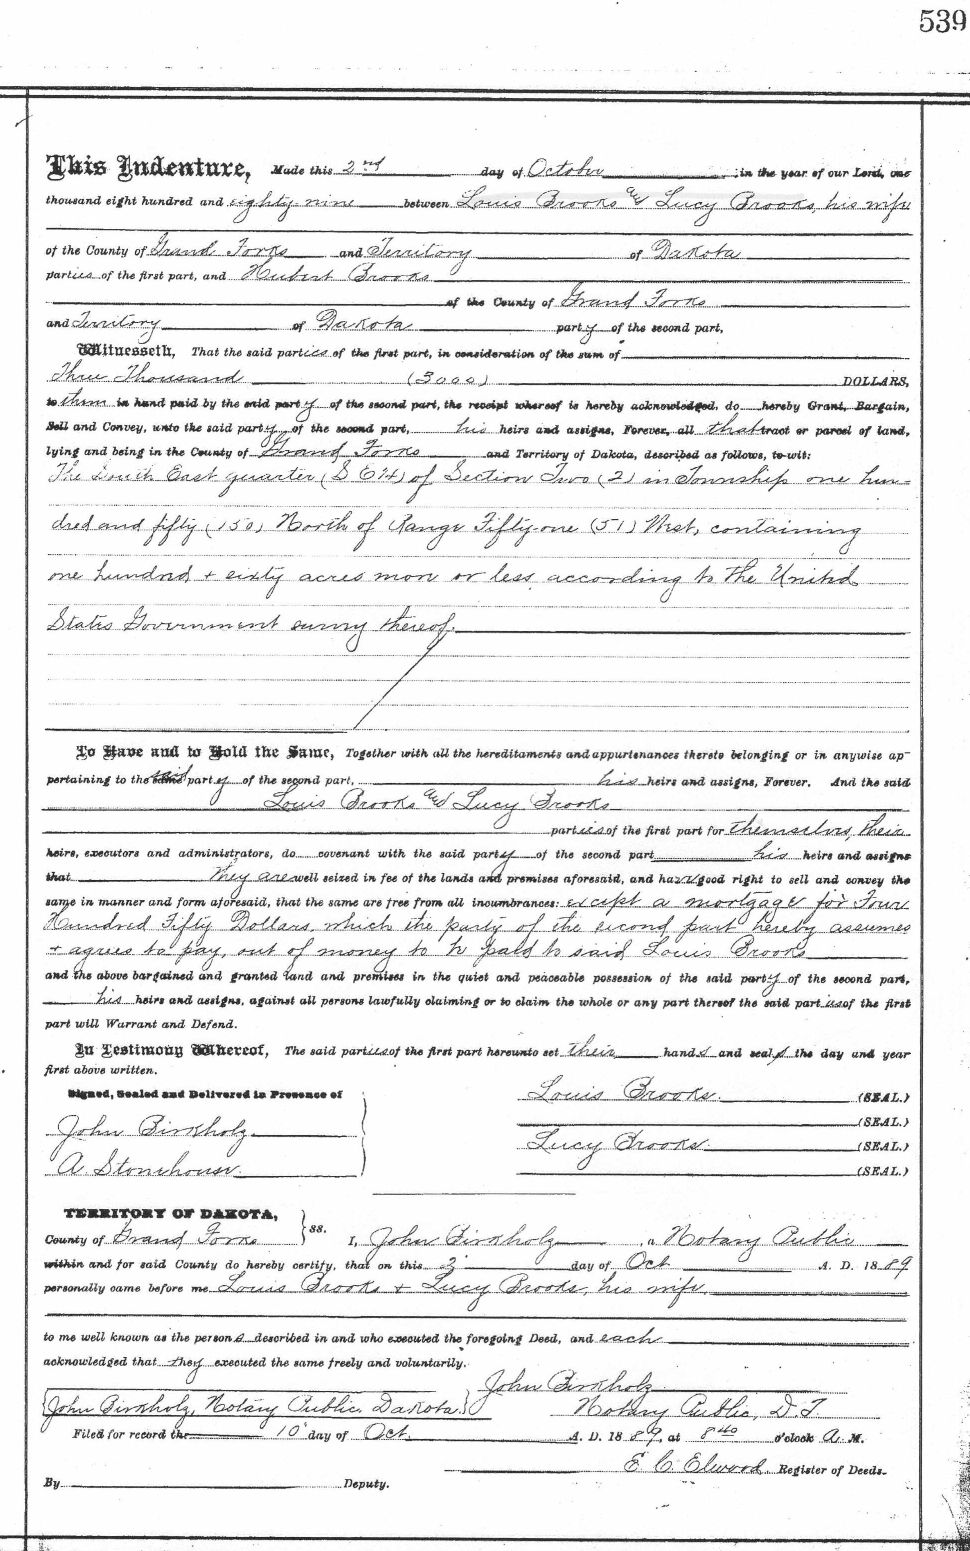 539
This Indenture, Made this 2nd day of October in the year of our Lord, one
thousand eight hundred and eighty-nine between Louis Brooks and Lucy Brooks, his wife
of the County of Grand Forks and Territory of Dakota
parties of the first part, and Hubert Brooks
of the County of Grand Forks
and Territory of Dakota party of the second part,
Witnesseth, That the said parties of the first part, in consideration of the sum of
Three Thousand (3000) DOLLARS,
to them in hand paid by the said party of the second part, the receipt whereof is hereby acknowledged, do hereby Grant, Bargain,
Sell and Convey, unto the said party of the second part, his heirs and assigns, Forever, all that tract or parcel of land,
lying and being in the County of Grand Forks and Territory of Dakota, described as follows, to-wit:
The South East quarter (S E ¼) of Section Two (2) in Township one hun-
dred and fifty (150) North of Range Fifty-one (51) West, containing
one hundred + sixty acres more or less according to the United
States Government survey thereof.
To Have and to Hold the Same, Together with all the hereditaments and appurtenances thereto belonging or in anywise ap-
pertaining to the said party of the second part, his heirs and assigns, Forever. And the said
Louis Brooks and Lucy Brooks
parties of the first part for themselves, their
heirs, executors and administrators, do covenant with the said party of the second part his heirs and assigns
that they are well seized in fee of the lands and premises aforesaid, and have good right to sell and convey the
same in manner and form aforesaid, that the same are free from all incumbrances: except a mortgage for Four
Hundred Fifty Dollars, which the party of the second part hereby assumes
+ agrees to pay, out of money to be paid to said Louis Brooks
and the above bargained and granted land and premises in the quiet and peaceable possession of the said party of the second part,
his heirs and assigns, against all persons lawfully claiming or to claim the whole or any part thereof the said parties of the first
part will Warrant and Defend.
In Testimony Whereof, The said parties of the first part hereunto set their hands and seals the day and year
first above written.
Signed, Sealed and Delivered in Presence of Louis Brooks. (SEAL.)
(SEAL.)
John Birkholz Lucy Brooks. (SEAL.)
A. Stonehouse. (SEAL.)
TERRITORY OF DAKOTA,
County of Grand Forks } ss. I, John Birkholz, a Notary Public
within and for said County do hereby certify, that on this 3 day of Oct A. D. 1889
personally came before me Louis Brooks + Lucy Brooks, his wife
to me well known as the persons described in and who executed the foregoing Deed, and each
acknowledged that they executed the same freely and voluntarily.
John Birkholz
John Birkholz, Notary Public, Dakota.} Notary Public, D. T.
Filed for record the 10 day of Oct. A. D. 1889, at 8 40 o'clock A. M.
E C Elwood, Register of Deeds.
By Deputy.